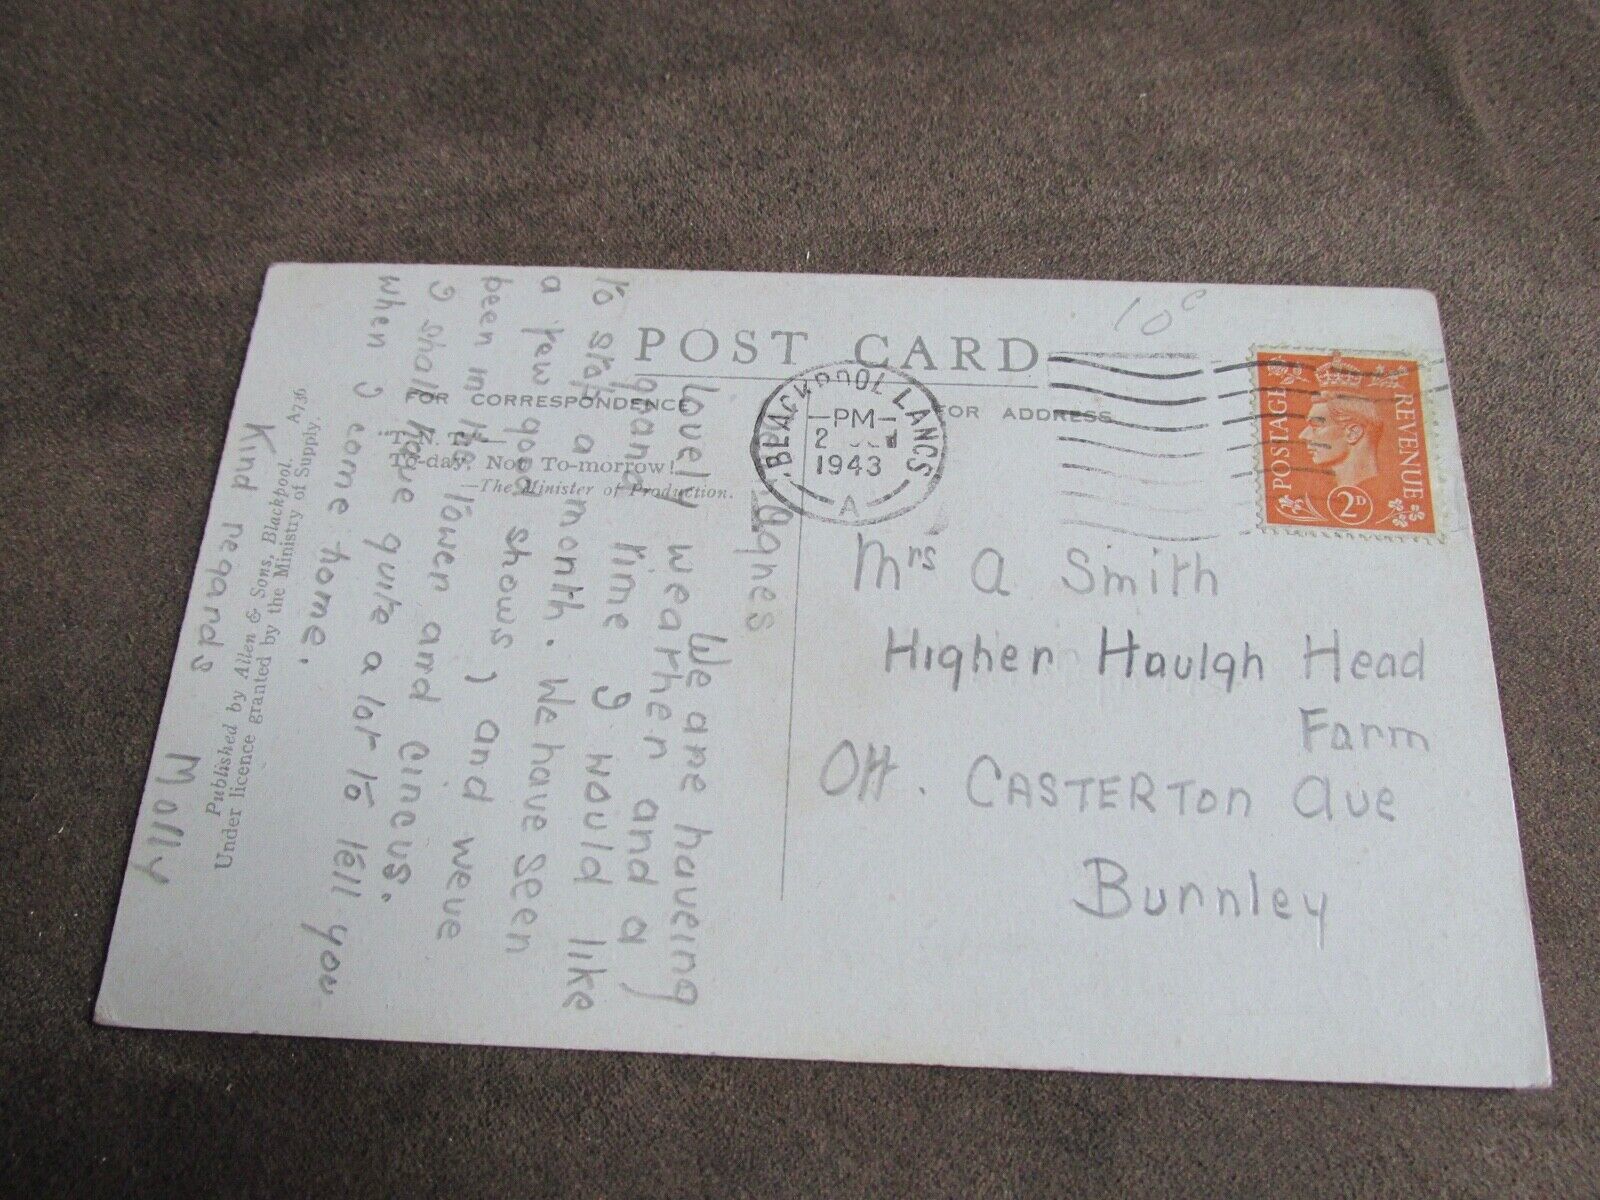 POST CARD
FOR CORRESPONDENCE
FOR ADDRESS
To-day, Not To-morrow!
—The Minister of Production.
BLACKPOOL LANCS
PM
2
1943
A
10c
POSTAGE REVENUE
2D
Mrs A Smith
Higher Haulgh Head
Farm
Off. CASTERTON Ave
Burnley
Agnes
We are haveing
lovely weather and a
grand time I would like
to stay a month. We have seen
a few good shows, and weve
been in the Tower and circus.
I shall have quite a lot to tell you
when I come home.
Kind regards
Molly
A736
Published by Allen & Sons, Blackpool.
Under licence granted by the Ministry of Supply.